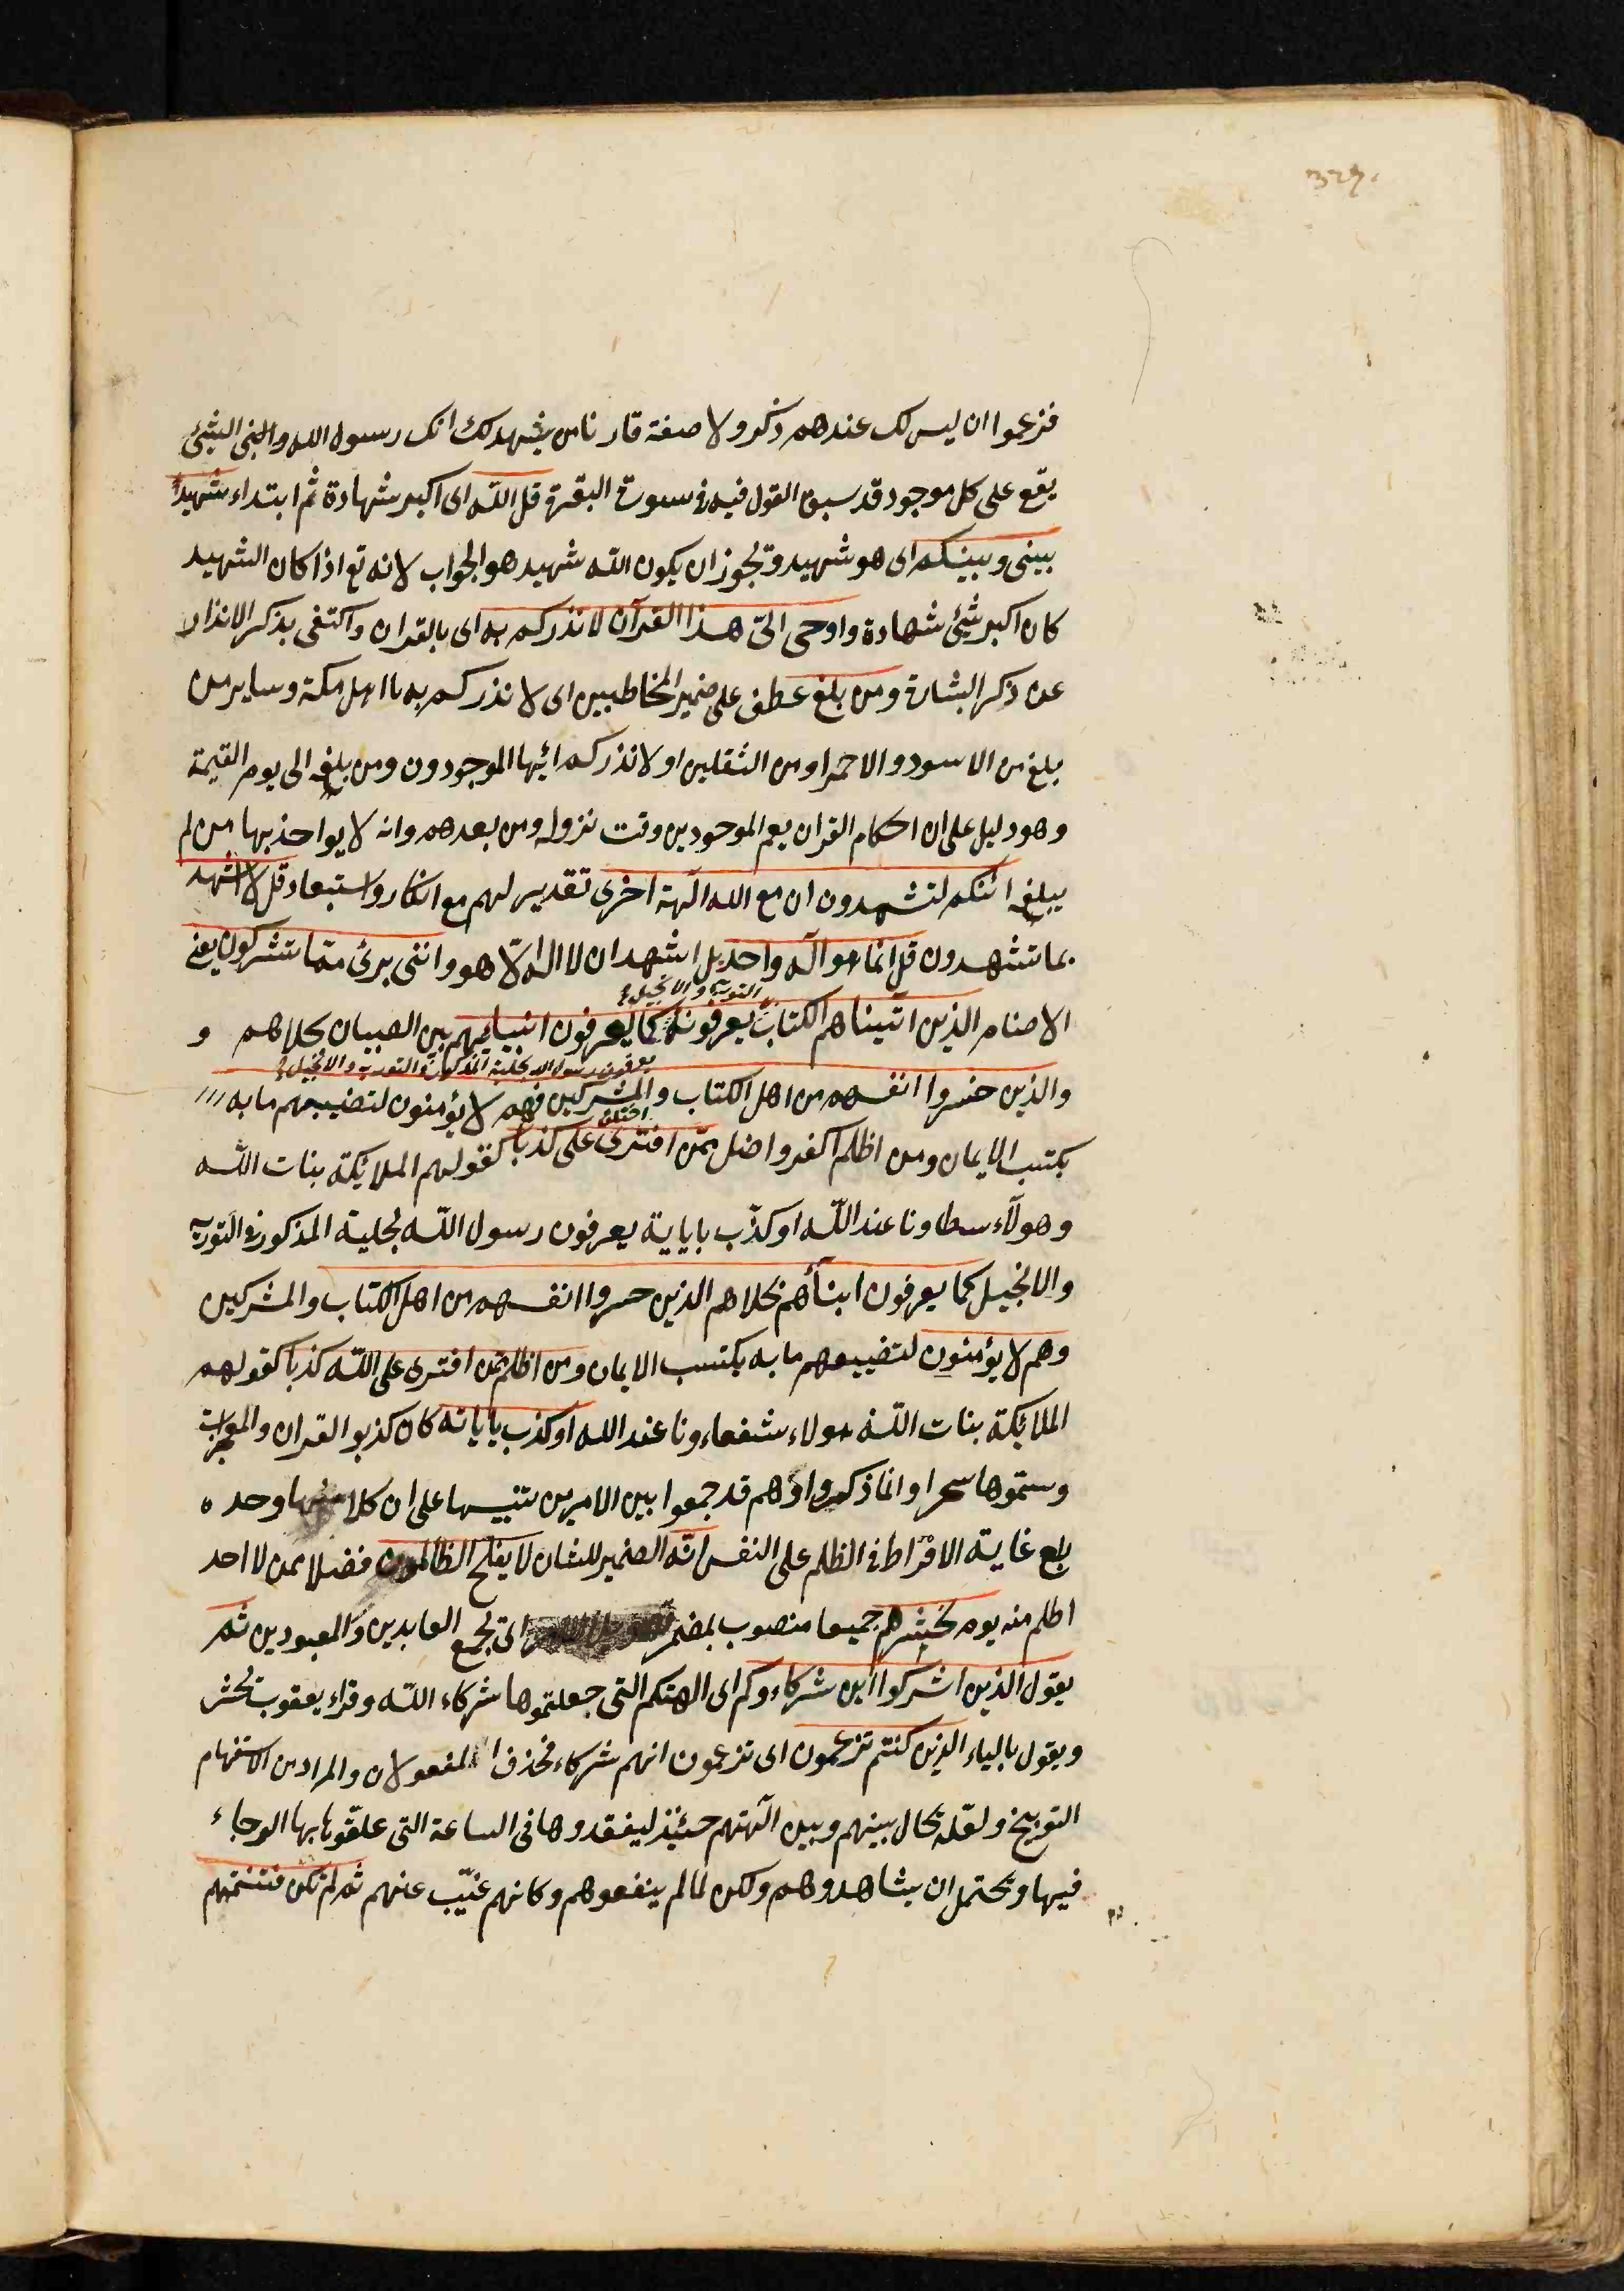 فزعموا ان ليس لك عندهم ذكر ولا صفة فارنا من يشهد لك انك رسول الله والشئ
يقع على كل موجود قد سبق القول فيه فى سورة البقرة قل الله اى اكبر شهادة ثم ابتداء شهيد
بينى وبينكم اى هو شهيد ويجوز ان يكون الله شهيد هو الجواب لانه تع اذا كان الشهيد
كان اكبر شئ شهادة واوحى الىّ هذا القرآن لانذركم به اى بالقران واكتفى بذكر الانذار
عن ذكر البشارة ومن بلغ عطف على ضمير المخاطبين اى لانذركم به يا اهل مكة وساير من
بلغ من الاسود والاحمر او من الثقلين او لانذركم ايّها الموجودون ومن بلغه الى يوم القيمة
وهو دليل على ان احكام القران يعم الموجودين وقت نزوله ومن بعدهم وانه لا يواخذ بها من لم
يبلغه ائنكم لتشهدون ان مع الله آلهة اخرى تقدير لهم مع انكار واستبعاد قل لا اشهد
بما تشهدون قل انما هو آله واحد بل اشهد ان لا اله الّا هو واننى برئ ممّا تشركون يعنى
التورية والانجيل
الاصنام الذين آتيناهم الكتاب يعرفونه كما يعرفون ابنياءهم بين الصبيان بحلاهم و
يعرفون رسول الله بحلية المذكورة فى التورية والانجيل
والذين خسروا انفسهم من اهل الكتاب والمشركين فهم لا يؤمنون لتضييعهم ما به
اختلق
يكتسب الايمان ومن اظلم اكفر واضل ممّن افترى على كذبا كقولهم الملائكة بنات الله
وهولاء عند الله او كذّب باياية يعرفون رسول الله بحلية المذكور فى التورية
والانجيل كما يعرفون ابنآءهم بحلاهم الذين خسروا انفسهم من اهل الكتاب والمشركين
وهم لا يؤمنون لتضييعهم ما به يكتسب الايمان ومن اظلم ممّن افترى على الله كذبا كقولهم
الملائكة بنات الله هولاء شفعاءونا عند الله او كذب باياته كان كذبوا القران والمعجزات
وسمّوها سحرا وانما ذكر او وهم قد جمعوا بين الامرين تنبيها على ان كلا منهما وحده
بلغ غاية الافراط فى الظلم على النفس انّه الضمير للشان لا يفلح الظالمون فضلا عمن لا احد
اظلم منه يوم نحشرهم جميعا منصوب بمضمر اى نجمع العابدين والمعبودين ثم
يقول الذين اشركوا اين شركاءوكم اى الهتكم التى جعلتموها شركاء الله وقراء يعقوب يحشر
ويقول بالياء الذين كنتم تزعمون اى تزعمون انهم شركاء فحذف المفعولان والمراد من الاستفهام
التوبيخ ولعلّه يحال بينهم وبين آلهتهم حينئذ ليفقدوها فى الساعة التى علّقوا بها الرجاء
فيها ويحتمل ان يشاهدوهم ولكن لما لم ينفعوهم وكانهم غيّب عنهم ثم لم تكن فتنتهم